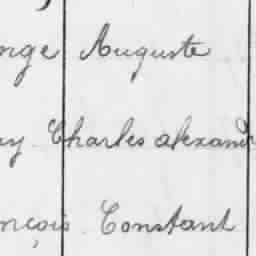 orge Auguste
ay Charles alexand
nçois Constant